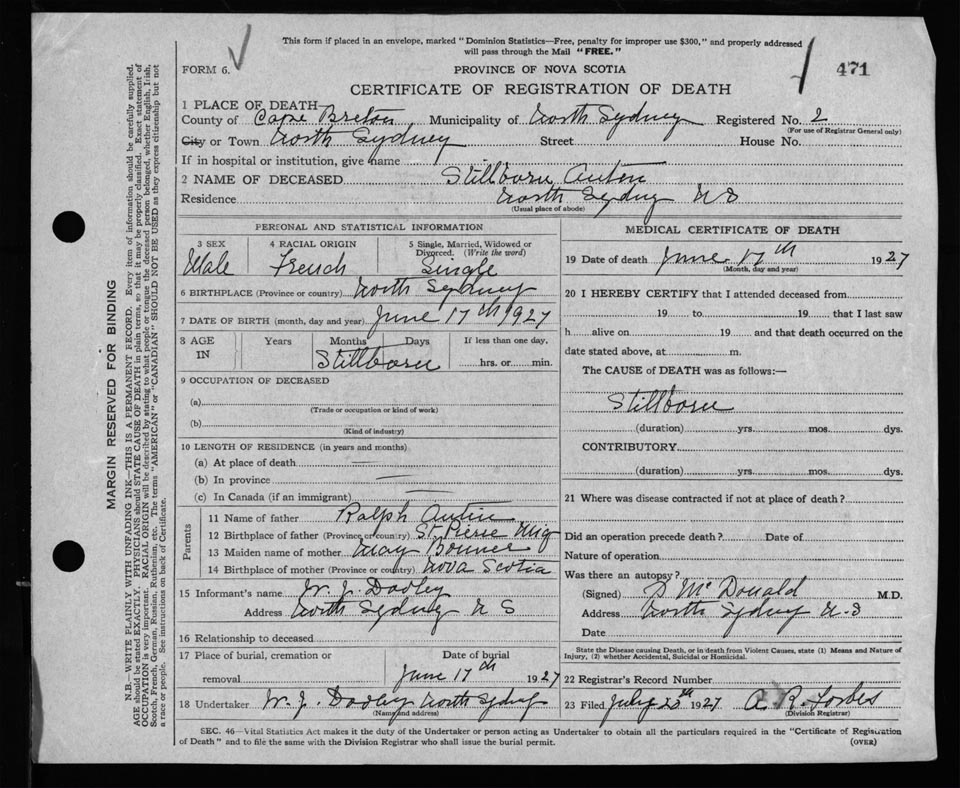 This form if placed in an envelope, marked "Dominion Statistics—Free, penalty for improper use $300," and properly addressed
will pass through the Mail "FREE."
FORM 6. PROVINCE OF NOVA SCOTIA 471
CERTIFICATE OF REGISTRATION OF DEATH
1 PLACE OF DEATH—
County of Cape Breton Municipality of North Sydney Registered No. 2
(For use of Registrar General only)
City or Town North Sydney Street House No.
If in hospital or institution, give name
2 NAME OF DECEASED Stillborn
Residence North Sydney N S
(Usual place of abode)
PERSONAL AND STATISTICAL INFORMATION
3 SEX 4 RACIAL ORIGIN 5 Single, Married, Widowed or
Divorced. (Write the word)
Male French Single
6 BIRTHPLACE (Province or country) North Sydney
7 DATE OF BIRTH (month, day and year) June 17th 1927
8 AGE Years Months Days If less than one day,
IN Stillborn hrs. or min.
9 OCCUPATION OF DECEASED
(a)
(Trade or occupation or kind of work)
(b)
(Kind of industry)
10 LENGTH OF RESIDENCE (in years and months)
(a) At place of death
(b) In province
(c) In Canada (if an immigrant)
Parents
11 Name of father Ralph
12 Birthplace of father (Province or country) St Pierre Miq
13 Maiden name of mother May
14 Birthplace of mother (Province or country) Nova Scotia
15 Informant's name W. J. Dooley
Address North Sydney N S
16 Relationship to deceased
17 Place of burial, cremation or Date of burial
removal June 17th 1927
18 Undertaker W. J. Dooley North Sydney
(Name and address)
MEDICAL CERTIFICATE OF DEATH
19 Date of death June 17th 1927
(Month, day and year)
20 I HEREBY CERTIFY that I attended deceased from
19 to 19 that I last saw
h alive on 19 and that death occurred on the
date stated above, at m.
The CAUSE of DEATH was as follows:—
Stillborn
(duration) yrs. mos. dys.
CONTRIBUTORY
(duration) yrs. mos. dys.
21 Where was disease contracted if not at place of death?
Did an operation precede death? Date of
Nature of operation
Was there an autopsy?
(Signed) McDonald M.D.
Address North Sydney N.S
Date
State the Disease causing Death, or in death from Violent Causes, state (1) Means and Nature of
Injury, (2) whether Accidental, Suicidal or Homicidal.
22 Registrar's Record Number
23 Filed July 1927 A. R. Forbes
(Division Registrar)
SEC. 46—Vital Statistics Act makes it the duty of the Undertaker or person acting as Undertaker to obtain all the particulars required in the "Certificate of Registration
of Death" and to file the same with the Division Registrar who shall issue the burial permit. (OVER)
MARGIN RESERVED FOR BINDING
N.B.—WRITE PLAINLY WITH UNFADING INK—THIS IS A PERMANENT RECORD. Every item of information should be carefully supplied.
AGE should be stated EXACTLY. PHYSICIANS should STATE CAUSE OF DEATH in plain terms, so that it may be properly classified. Exact statement of
OCCUPATION is very important. RACIAL ORIGIN will be described by stating to what people or tongue the deceased person belonged, whether English, Irish,
Scotch, French, German, Russian, Ruthenian, etc. The terms "AMERICAN" or "CANADIAN" SHOULD NOT BE USED as they express citizenship but not
a race or people. See instructions on back of Certificate.